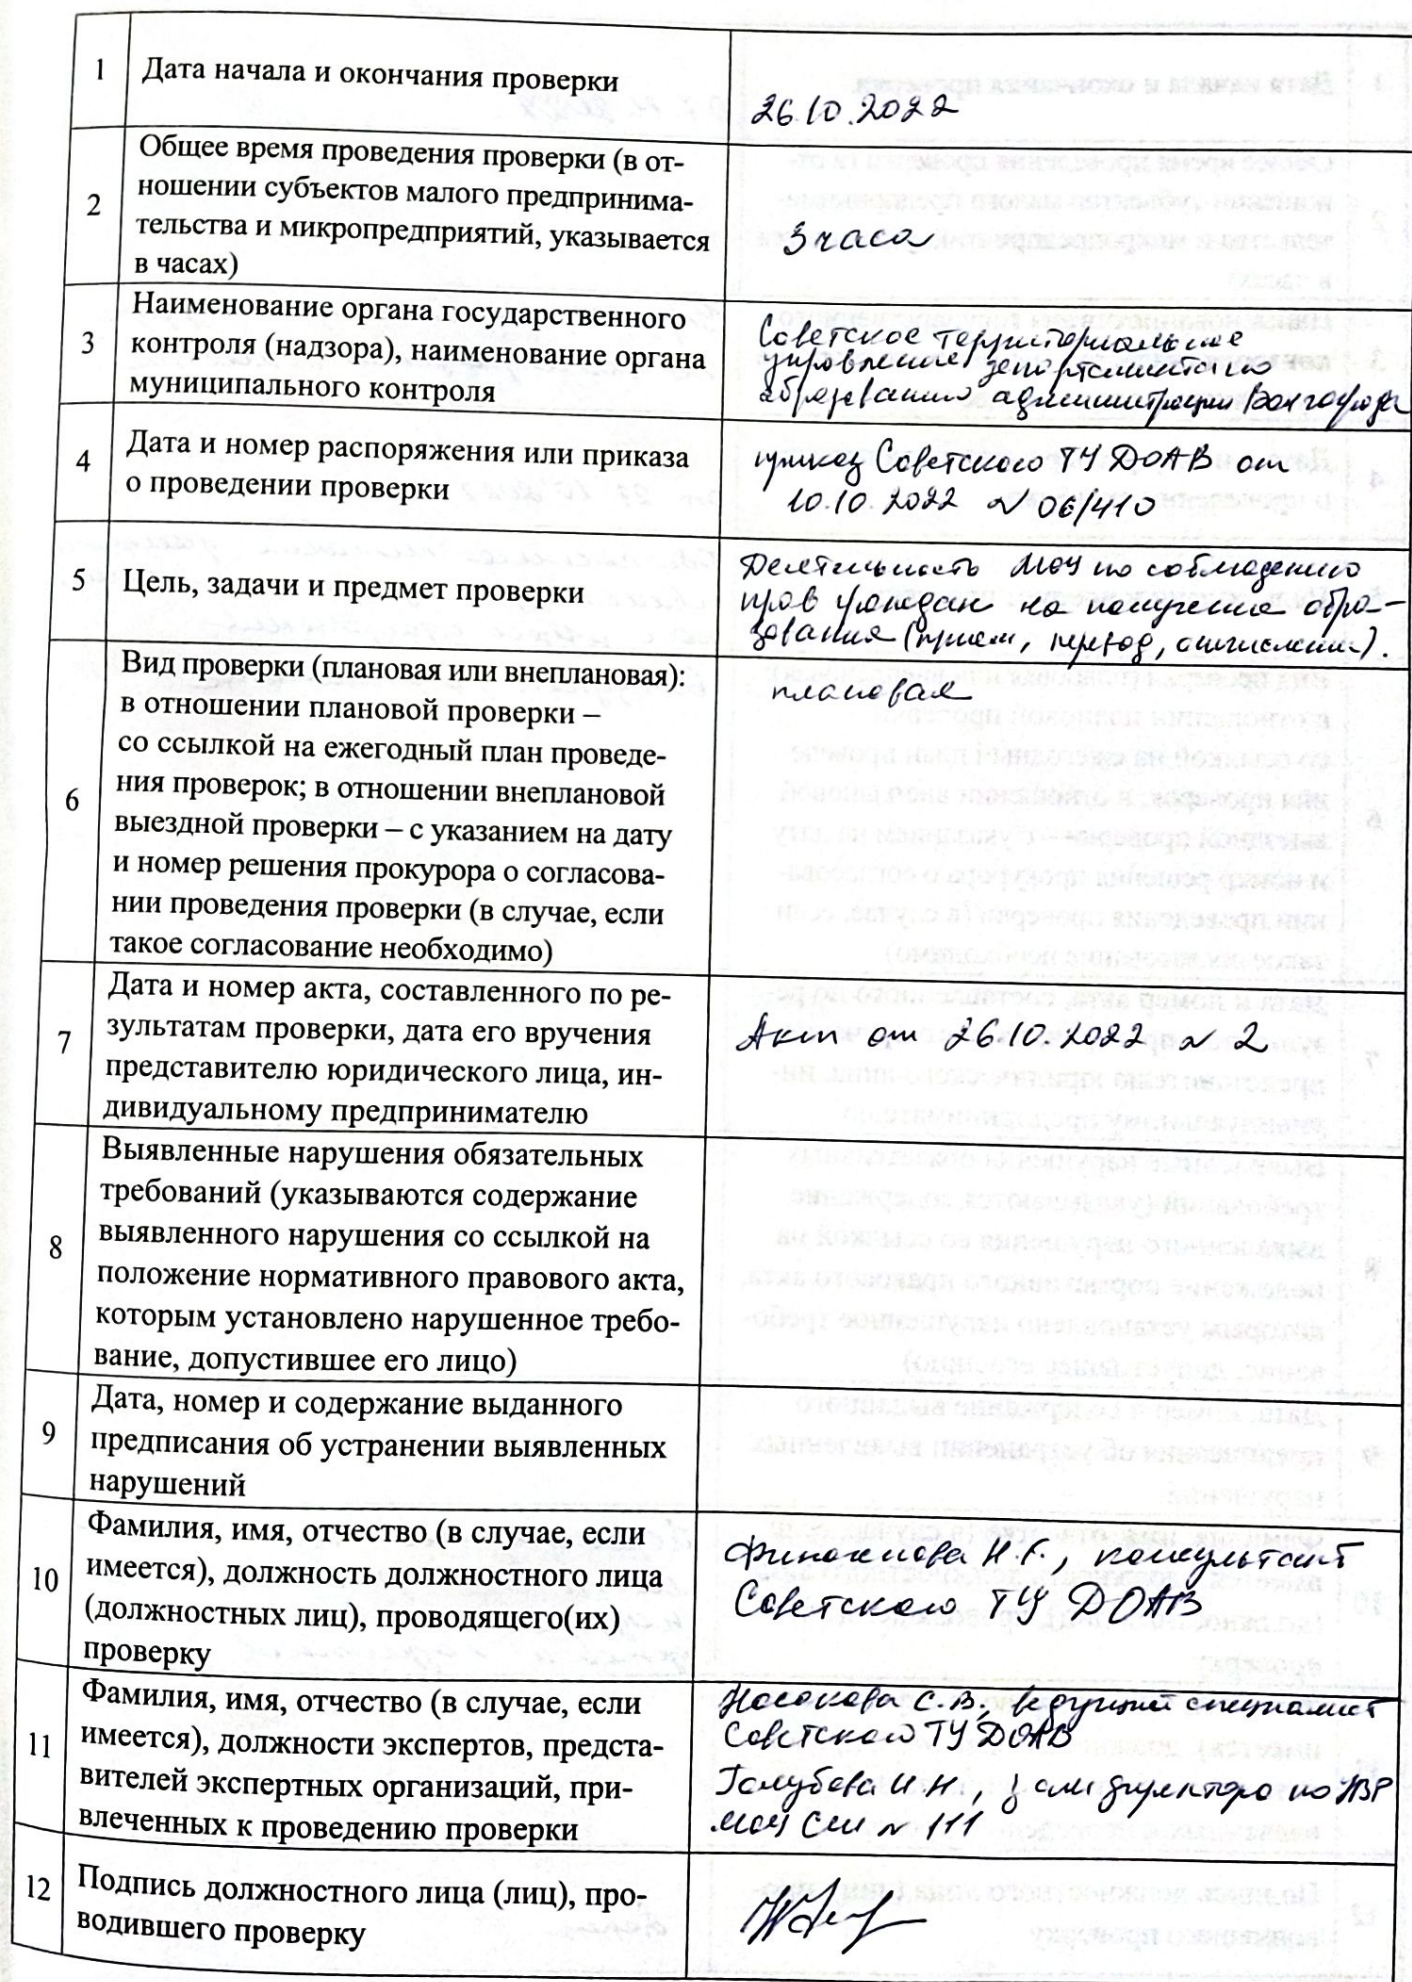 1
Дата начала и окончания проверки
26.10.2022
2
Общее время проведения проверки (в от-
ношении субъектов малого предпринима-
тельства и микропредприятий, указывается
в часах)
3 часа
3
Наименование органа государственного
контроля (надзора), наименование органа
муниципального контроля
Советское территориальное
управление департамента по
образованию администрации Волгограда
4
Дата и номер распоряжения или приказа
о проведении проверки
приказ Советского ТУ ДОАВ от
10.10.2022 № 06/410
5
Цель, задачи и предмет проверки
Деятельность МОУ по соблюдению
прав граждан на получение обра-
зования (прием, перевод, отчисление).
6
Вид проверки (плановая или внеплановая):
в отношении плановой проверки –
со ссылкой на ежегодный план проведе-
ния проверок; в отношении внеплановой
выездной проверки – с указанием на дату
и номер решения прокурора о согласова-
нии проведения проверки (в случае, если
такое согласование необходимо)
плановая
7
Дата и номер акта, составленного по ре-
зультатам проверки, дата его вручения
представителю юридического лица, ин-
дивидуальному предпринимателю
Акт от 26.10.2022 № 2
8
Выявленные нарушения обязательных
требований (указываются содержание
выявленного нарушения со ссылкой на
положение нормативного правового акта,
которым установлено нарушенное требо-
вание, допустившее его лицо)
9
Дата, номер и содержание выданного
предписания об устранении выявленных
нарушений
10
Фамилия, имя, отчество (в случае, если
имеется), должность должностного лица
(должностных лиц), проводящего(их)
проверку
консультант
Советского ТУ ДОАВ
11
Фамилия, имя, отчество (в случае, если
имеется), должности экспертов, предста-
вителей экспертных организаций, при-
влеченных к проведению проверки
С.В., ведущий специалист
Советского ТУ ДОАВ
Голубева И.Н., зам директора по УВР
МОУ СШ № 111
12
Подпись должностного лица (лиц), про-
водившего проверку